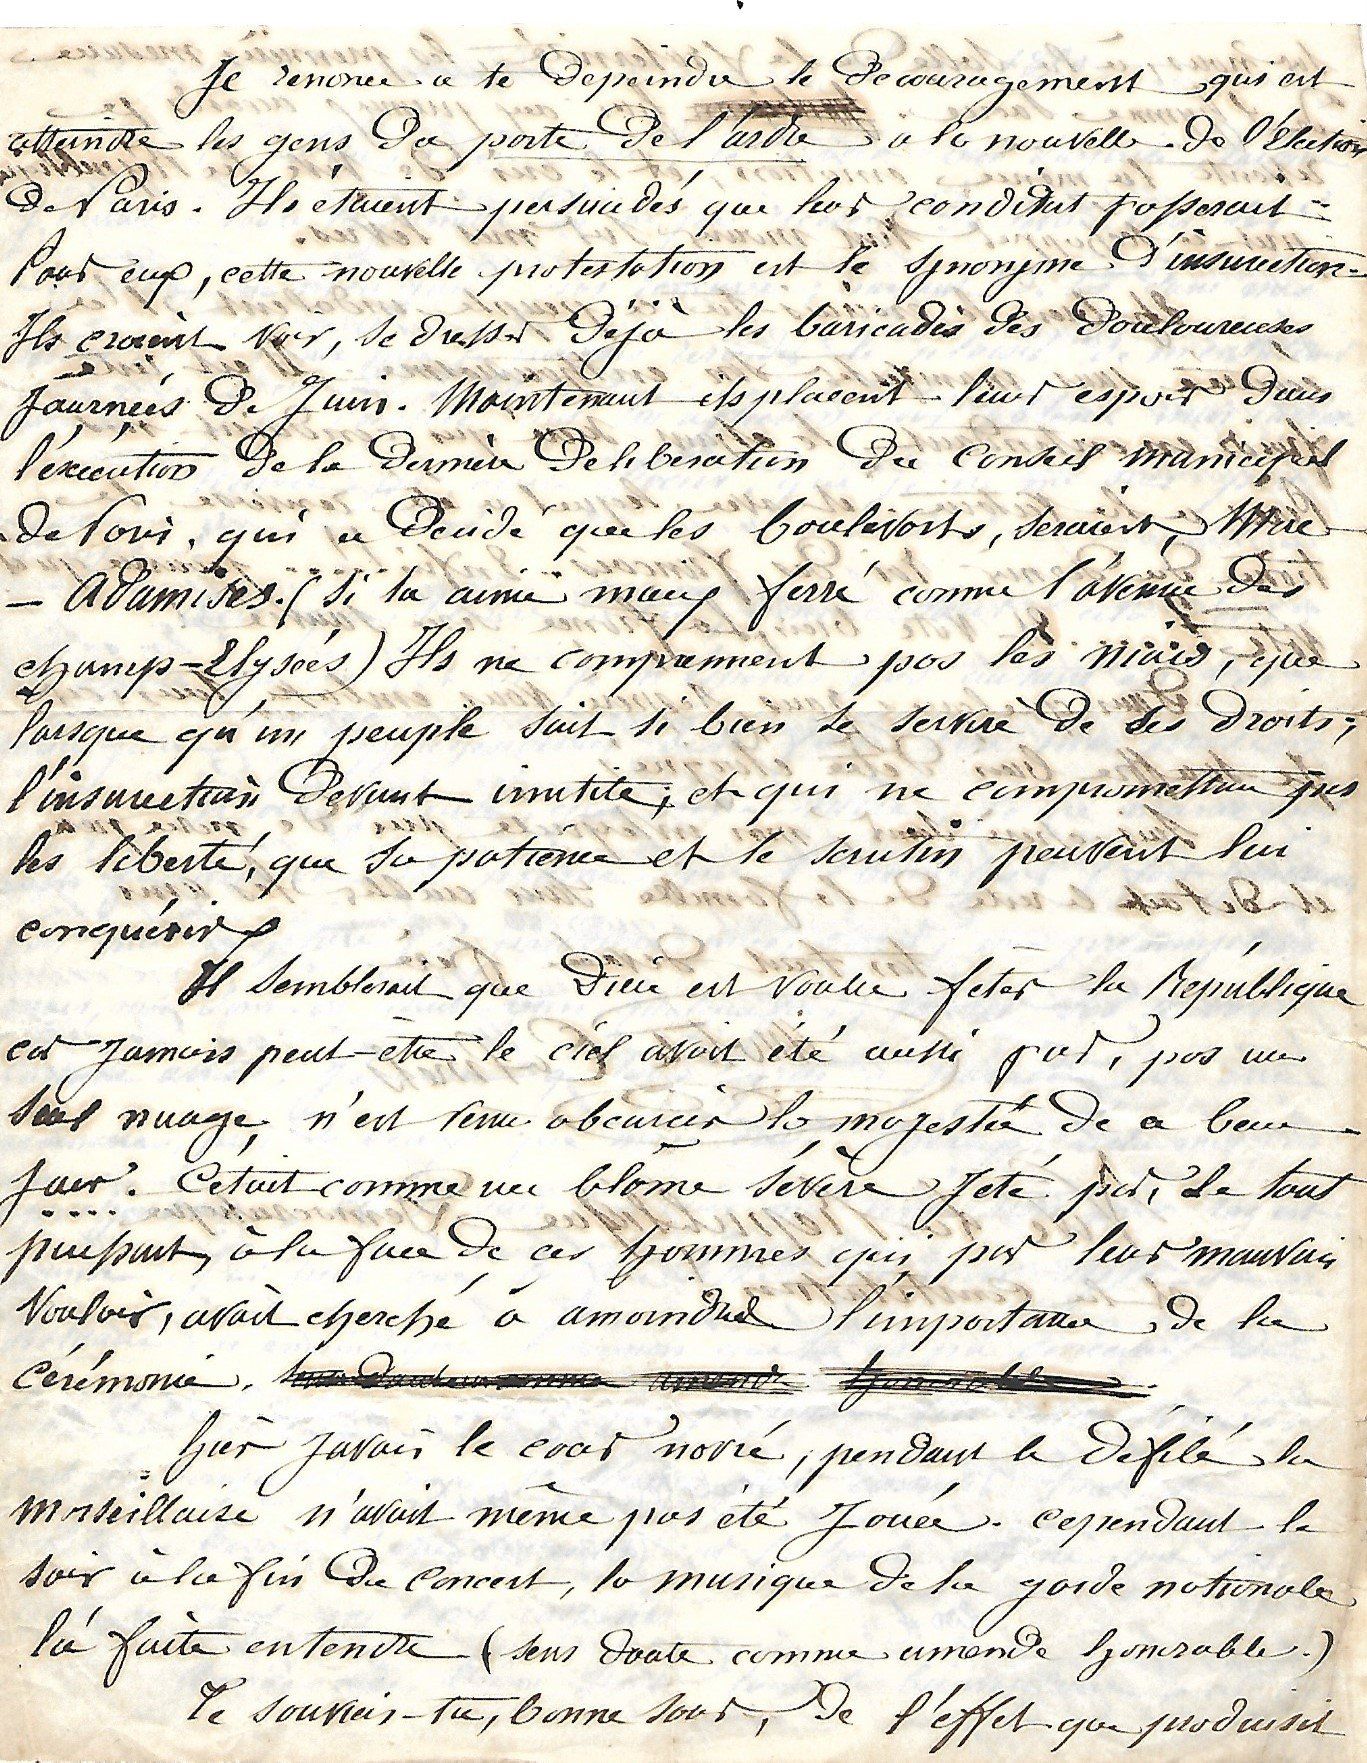 Je renonce a te depeindre le decouragement qui est
atteindre les gens du porte de l'ardre a la nouvelle de l'élection
de Paris. Ils étaient persuadés que leur condidat passerait =
Pour eux, cette nouvelle protestation est le synonyme d'insurection =
Ils croient voir, se dresser dèjà les baricades des douloureuses
journées de Juin. Maintenant ils placent leur espoir dans
l'éxécution de la dernière deliberation du conseil municipal
de Paris, qui a décidé que les boulevarts, seraient, Mac
- adamisés. (si tu aime mieux ferré comme l'avenue des
champ-Elyseés) Ils ne comprennent pas les niais, que
lorsque qu'un peuple sait si bien se servire de ses droits,
l'insurection devient innutile; et qui ne comprometterra pas
les liberté, que sa patience et le scrutin peuvent lui
conquérir
Il semblerait que Dieu est voulu fêter la République
car jamais peut-être le ciel avait été aussi pur, pas un
seul nuage, n'est venu obcurcir la majesté de ce beau
jour. C'était comme un blâme sévère jeté par, le tout
puissant, à la face de ces hommes qui par leur mauvais
vouloir, avait cherché à amoindrire l'importance de la
cérémonie. sans doute comme amende honorable
hièr javais le cœur navré, pendant le défilé la
marseillaise n'avait même pas été jouée. cependant le
soir à la fin du concert, la musique de la garde nationale
l'a faite entendre (sens doute comme amende honorable.)
Te souviens-tu, bonne sœur, de l'effet que produisit